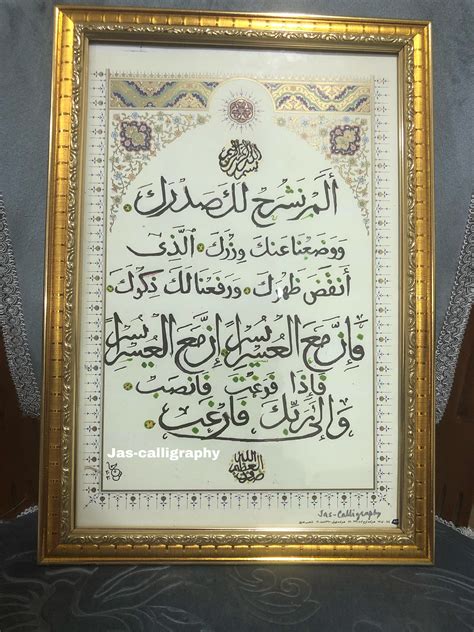 بسم الله الرحمن الرحيم
ألم نشرح لك صدرك
ووضعنا عنك وزرك الذي
أنقض ظهرك ورفعنا لك ذكرك
فإن مع العسر يسرا إن مع العسر يسرا
فإذا فرغت فانصب
وإلى ربك فارغب
Jas-calligraphy
صدق الله العظيم
Jas-Calligraphy